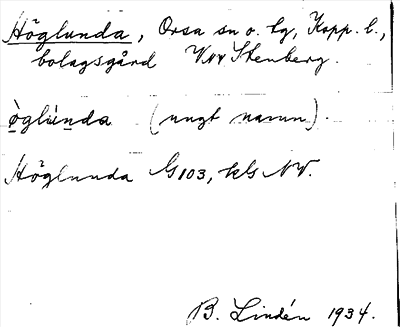 Höglunda, Orsa sn o. tg, Kopp. l.,
bolagsgård VNV Stenberg.
òglúnda (ungt namn).
Höglunda G103, kls NV.
B. Lindén 1934.